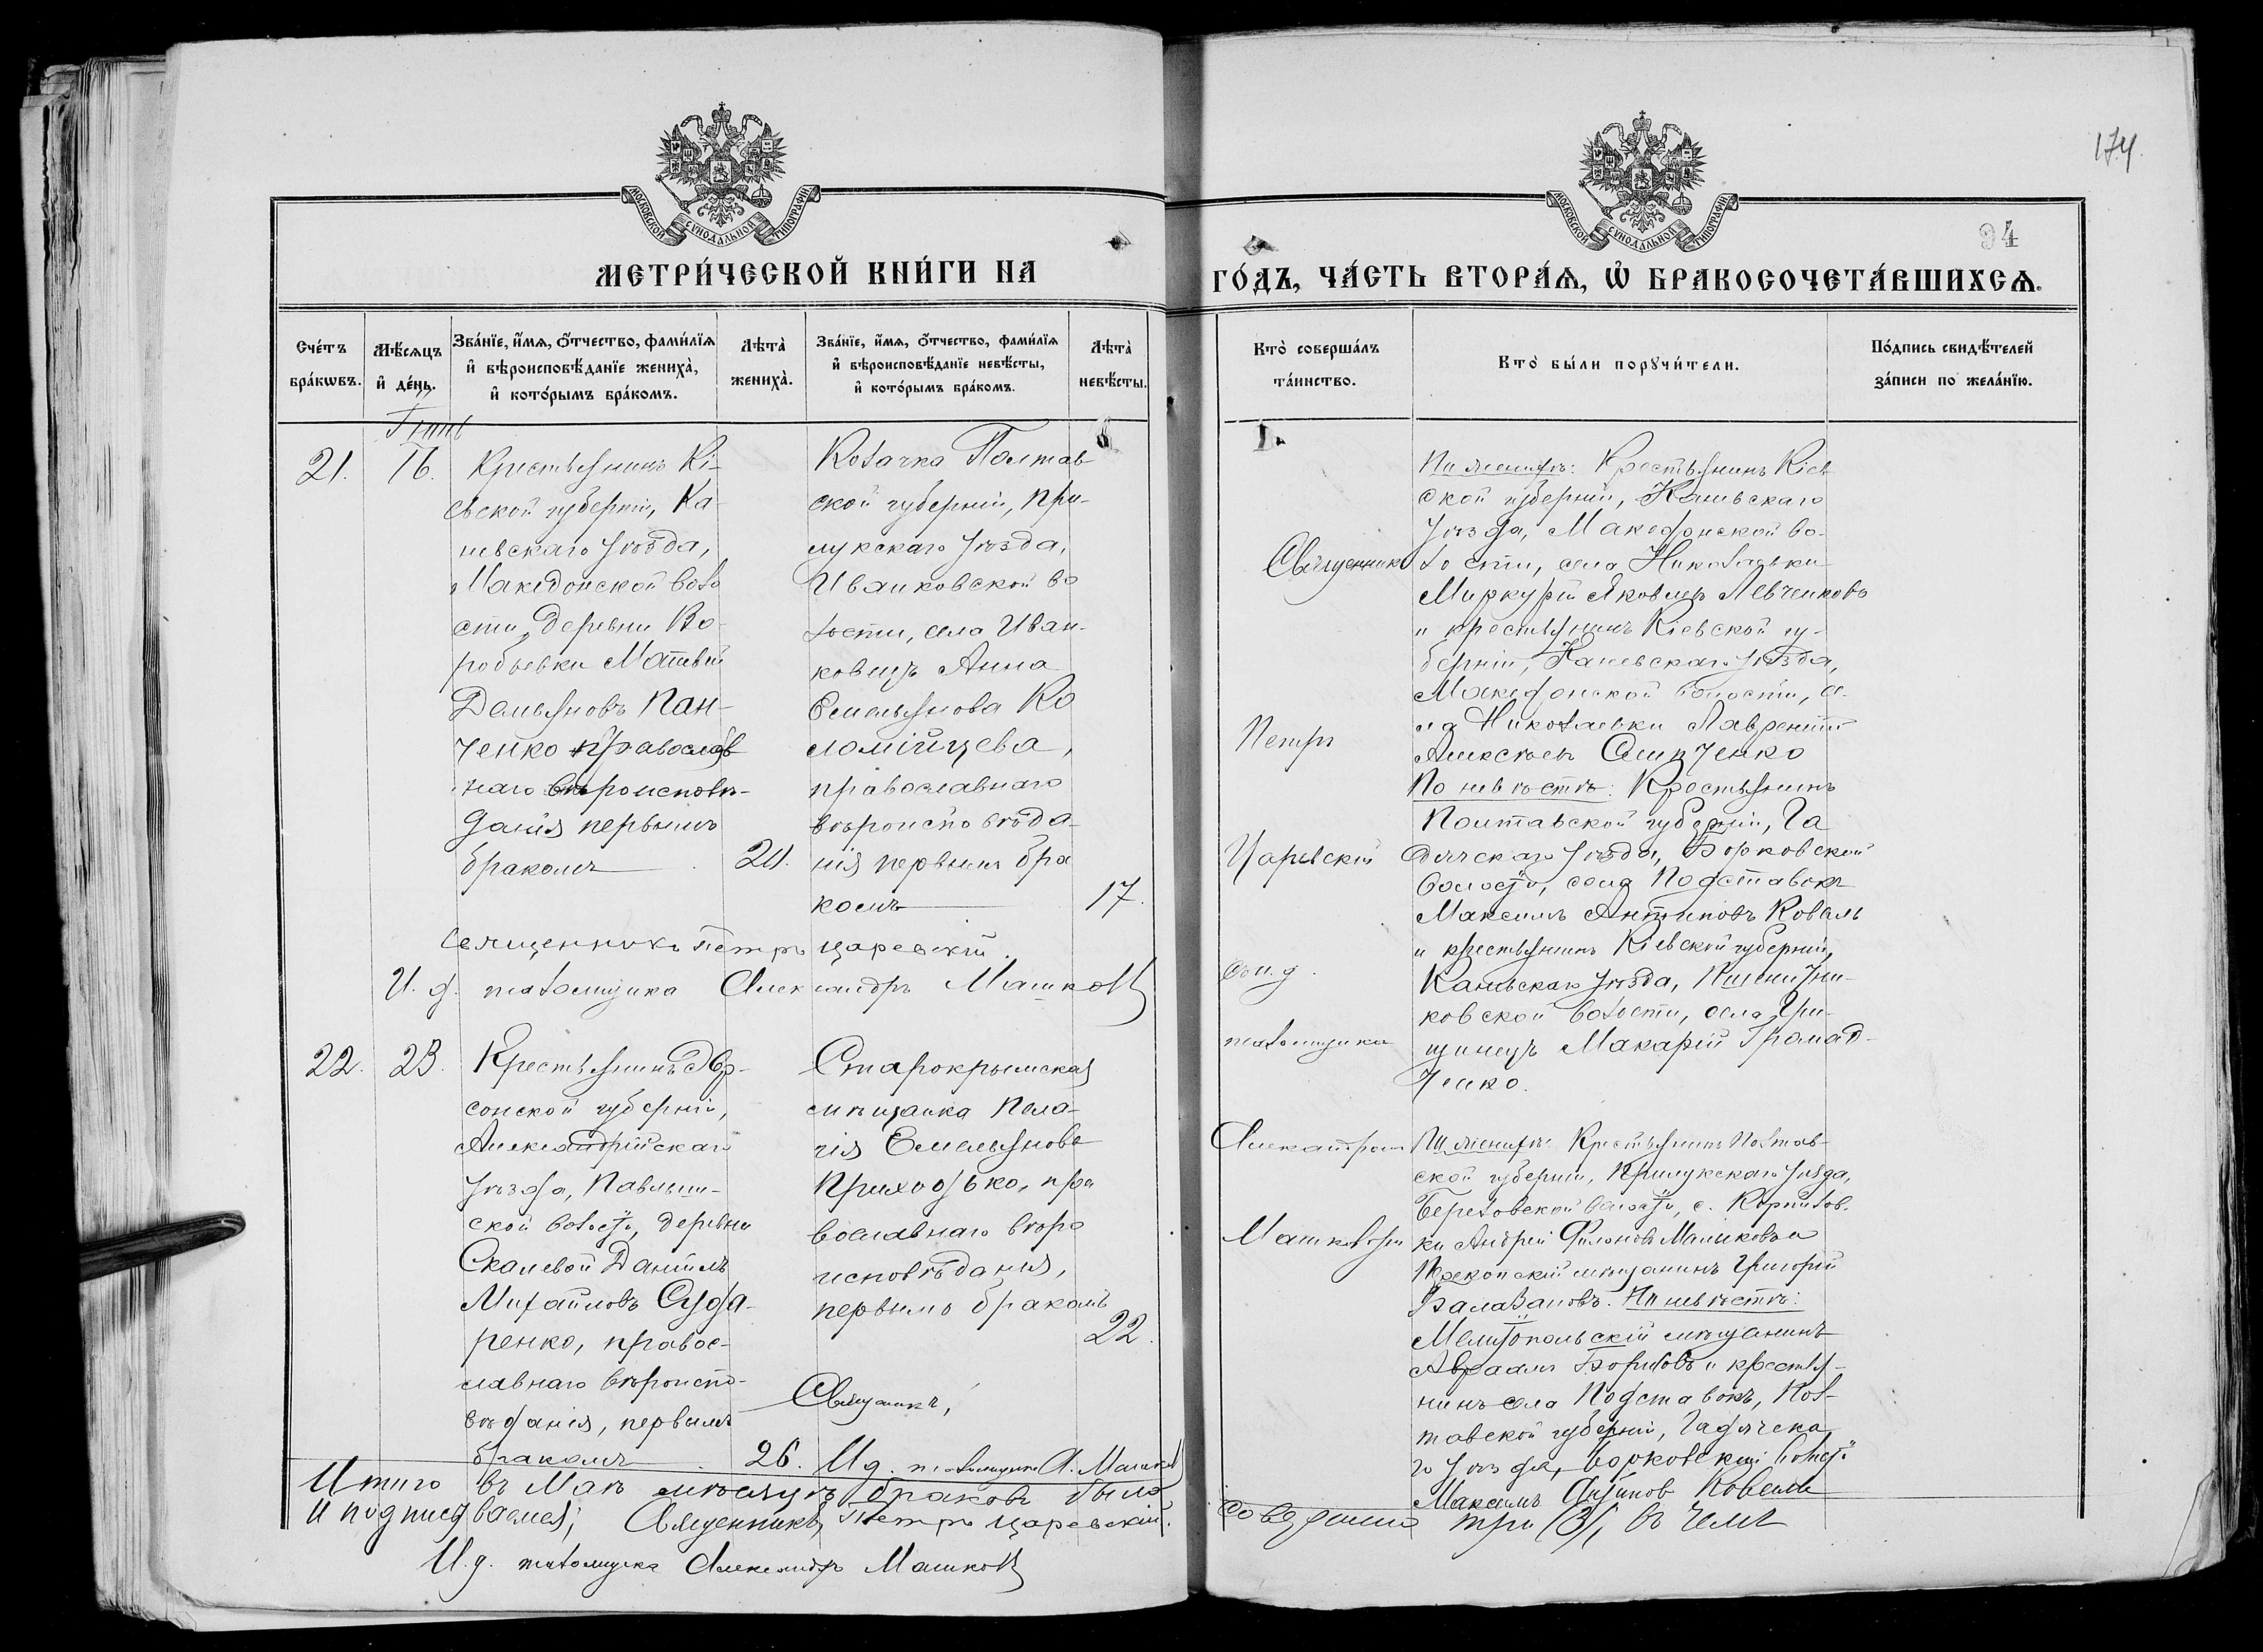 174
94
МОСКОВСКОЙ СѴНОДАЛЬНОЙ ТИПОГРАФІИ
МОСКОВСКОЙ СѴНОДАЛЬНОЙ ТИПОГРАФІИ
МЕТРИ́ЧЕСКОЙ КНИ́ГИ НА
ГО́ДЪ, ЧА́СТЬ ВТОРА́Я, Ѽ БРАКОСОЧЕТА́ВШИХСЯ.
Сче́тъ бра́кѡвъ.
Мѣ́сяцъ и҆ де́нь.
Зва́нїе, и҆́мя, ѻ҆́тчество, фами́лїя
и҆ вѣроисповѣ́данїе жениха̀,
и҆ кото́рымъ бра́комъ.
Лѣта̀ жениха̀.
Зва́нїе, и҆́мя, ѻ҆́тчество, фами́лїя
и҆ вѣроисповѣ́данїе невѣ́сты,
и҆ кото́рымъ бра́комъ.
Лѣта̀ невѣ́сты.
Кто̀ соверша́лъ
та́инство.
Кто̀ бы́ли порꙋчи́тели.
По́дпись свидѣ́телей
за́писи по жела́нїю.
21.
16.
Крестьянинъ Кі-
евской губерніи, Ка-
невскаго уѣзда,
Македонской воло
сти, деревни Во-
робьевки Матвей
Демьяновъ Пан-
ченко православ
наго вѣроисповѣ-
данія первымъ
бракомъ
20.
Козачка Полтав
ской губерніи, При-
лукскаго уѣзда,
Иваньковской во
лости, села Иван-
ковецъ Анна
Емельянова Ко
ломійцева,
православнаго
вѣроисповѣда-
нія первымъ бра
комъ
17.
Священникъ Петръ Царевскій.
И. д. псаломщика Александръ Машков
22.
23.
Крестьянинъ Хер-
сонской губерніи,
Александрійскаго
уѣзда, Павлыш-
ской волости, деревни
Скалевой Даніилъ
Михайловъ Суда-
ренко, правос-
лавнаго вѣроиспо-
вѣданія, первымъ
бракомъ
26.
Старокрымская
мѣщанка Пела-
гія Емельянова
Приходько, пра
вославнаго вѣро
исповѣданія,
первымъ бракомъ
22.
Священникъ,
И. д. псаломщика А. Машков
Итого въ Маѣ мѣсяцѣ браковъ было
И подписуваемся; Священникъ Петръ Царевскій.
И. д. псаломщика Александръ Машков
Священникъ
Петръ
Царевскій
съ и. д.
псаломщика
Александромъ
Машковымъ
По женихѣ: Крестьянинъ Кіев
ской губерніи, Каневскаго
уѣзда, Македонской во-
лости, села Николаевки
Миркурій Яковлевъ Левченковъ
и крестьянинъ Кіевской гу-
берніи, Каневскаго уѣзда,
Македонской волости, се-
ла Николаевки Лаврентій
Алексѣевъ
По невѣстѣ: Крестьянинъ
Полтавской губерніи, Га
дячскаго уѣзда, Борковской
волости, села Подставокъ
Максимъ Антиповъ Коваль
и крестьянинъ Кіевской губерніи,
Каневскаго уѣзда, Пшенични-
ковской волости, села Гри-
щинецъ Макарій Громад-
ченко.
По женихѣ: Крестьянинъ Полтав-
ской губерніи, Прилукскаго уѣзда,
Березовской волости, с. Корнилов-
ки Андрей Филоновъ Маликовъ и
Перекопскій мѣщанинъ Григорій
Балабановъ. По невѣстѣ:
Мелитопольскій мѣщанинъ
Авраамъ Борисовъ и крестья-
нинъ села Подставокъ, Пол-
тавской губерніи, Гадячска
го уѣзда, Борковской волости
Максимъ Антипов Коваль
совершено три (3), въ чемъ